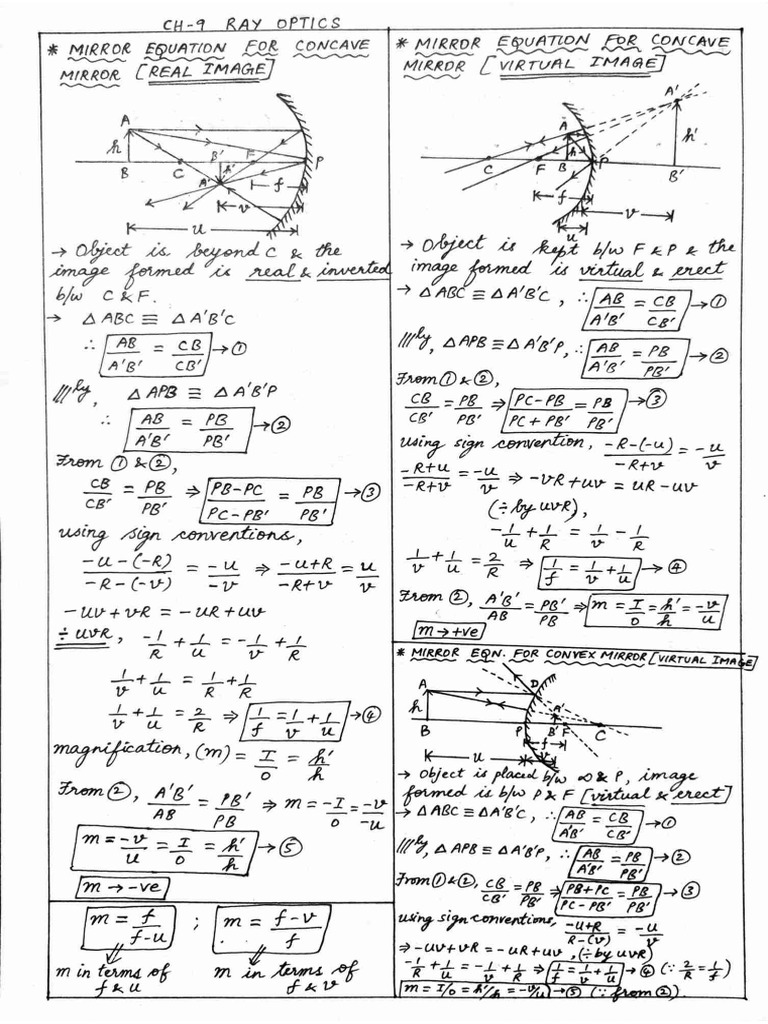 CH-9 RAY OPTICS
* MIRROR EQUATION FOR CONCAVE
MIRROR [REAL IMAGE]
A
h
B
C
B'
h'
F
A'
P
f
v
u
→ Object is beyond C & the
image formed is real & inverted
b/w C & F.
→ △ABC ≡ △A'B'C
∴ AB/A'B' = CB/CB' → ①
///ly, △APB ≡ △A'B'P
∴ AB/A'B' = PB/PB' → ②
From ① & ②,
CB/CB' = PB/PB' ⇒ PB-PC/PC-PB' = PB/PB' → ③
using sign conventions,
-u-(-R)/-R-(-v) = -u/-v ⇒ -u+R/-R+v = u/v
-uv+vR = -uR+uv
÷ uvR, -1/R + 1/u = -1/v + 1/R
1/v + 1/u = 1/R + 1/R
1/v + 1/u = 2/R ⇒ 1/f = 1/v + 1/u → ④
magnification, (m) = I/O = h'/h
From ②, A'B'/AB = PB'/PB ⇒ m = -I/O = -v/-u
m = -v/u = I/O = h'/h → ⑤
m → -ve
m = f/f-u ; m = f-v/f
m in terms of f & u
m in terms of f & v
* MIRROR EQUATION FOR CONCAVE
MIRROR [VIRTUAL IMAGE]
A'
A
h
h'
C
F
B
P
B'
f
v
u
→ Object is kept b/w F & P & the
image formed is virtual & erect
→ △ABC ≡ △A'B'C, ∴ AB/A'B' = CB/CB' → ①
///ly, △APB ≡ △A'B'P, ∴ AB/A'B' = PB/PB' → ②
From ① & ②,
CB/CB' = PB/PB' ⇒ PC-PB/PC+PB' = PB/PB' → ③
using sign convention, -R-(-u)/-R+v = -u/v
-R+u/-R+v = -u/v ⇒ -vR+uv = uR-uv
(÷ by uvR),
-1/u + 1/R = 1/v - 1/R
1/v + 1/u = 2/R ⇒ 1/f = 1/v + 1/u → ④
From ②, A'B'/AB = PB'/PB ⇒ m = I/O = h'/h = -v/u
m → +ve
* MIRROR EQN. FOR CONVEX MIRROR [VIRTUAL IMAGE]
A
D
h
A'
B
P
B'
F
C
f
u
v
→ Object is placed b/w ∞ & P, image
formed is b/w P & F [virtual & erect]
→ △ABC ≡ △A'B'C, ∴ AB/A'B' = CB/CB' → ①
///ly, △APB ≡ △A'B'P, ∴ AB/A'B' = PB/PB' → ②
From ① & ②, CB/CB' = PB/PB' ⇒ PB+PC/PC-PB' = PB/PB' → ③
using sign conventions, -u+R/R-(v) = -u/v
⇒ -uv+vR = -uR+uv, (÷ by uvR)
-1/R + 1/u = -1/v + 1/R ⇒ 1/f = 1/v + 1/u → ④ (∵ 2/R = 1/f)
m = I/O = h'/h = -v/u → ⑤ (∵ from ②).